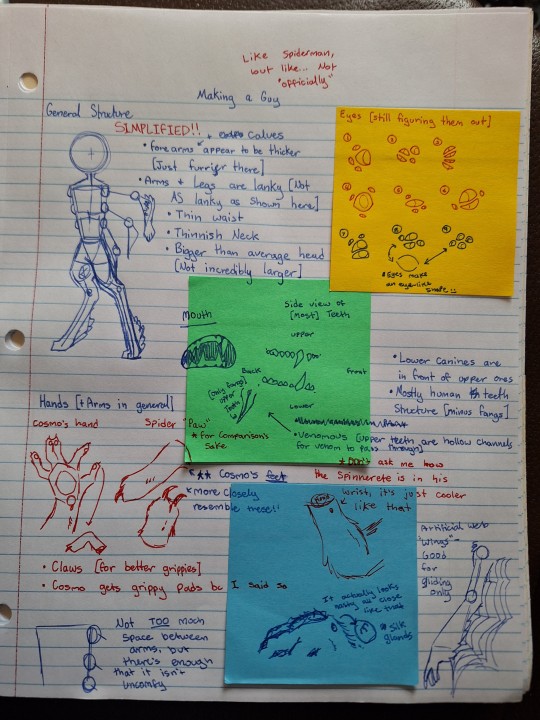 Like Spiderman,
but like... Not
"officially"
Making a Guy
General Structure
SIMPLIFIED!!
+ calves
• forearms appear to be thicker
[Just furrier there]
• Arms + Legs are lanky [Not
AS lanky as shown here]
• Thin waist
• Thinnish Neck
• Bigger than average head
[Not incredibly larger]
Eyes [still figuring them out]
1
2
3
4
5
6
7
8
9
* Eyes make
an eye-like
shape
Mouth
Side view of
[most] Teeth
upper
Back
Front
[only fangs]
upper
Teeth
Lower
• Venomous [upper teeth are hollow channels
for venom to pass through]
• Lower Canines are
in front of upper ones
• Mostly human teeth
structure [minus fangs]
Hands [+ Arms in general]
Cosmo's hand
Spider "Paw"
* for comparison's
sake
** Cosmo's feet
more closely
resemble these!!
* Don't ask me how
the Spinnerete is in his
wrist, it's just cooler
like that
• Claws [for better grippies]
• Cosmo gets grippy pads bc I said so
Not TOO much
space between
arms, but
there's enough
that it isn't
uncomfy
It actually looks
nasty up close
like that
* Silk
glands
Artificial web
"wings" -
Good
for
gliding
only